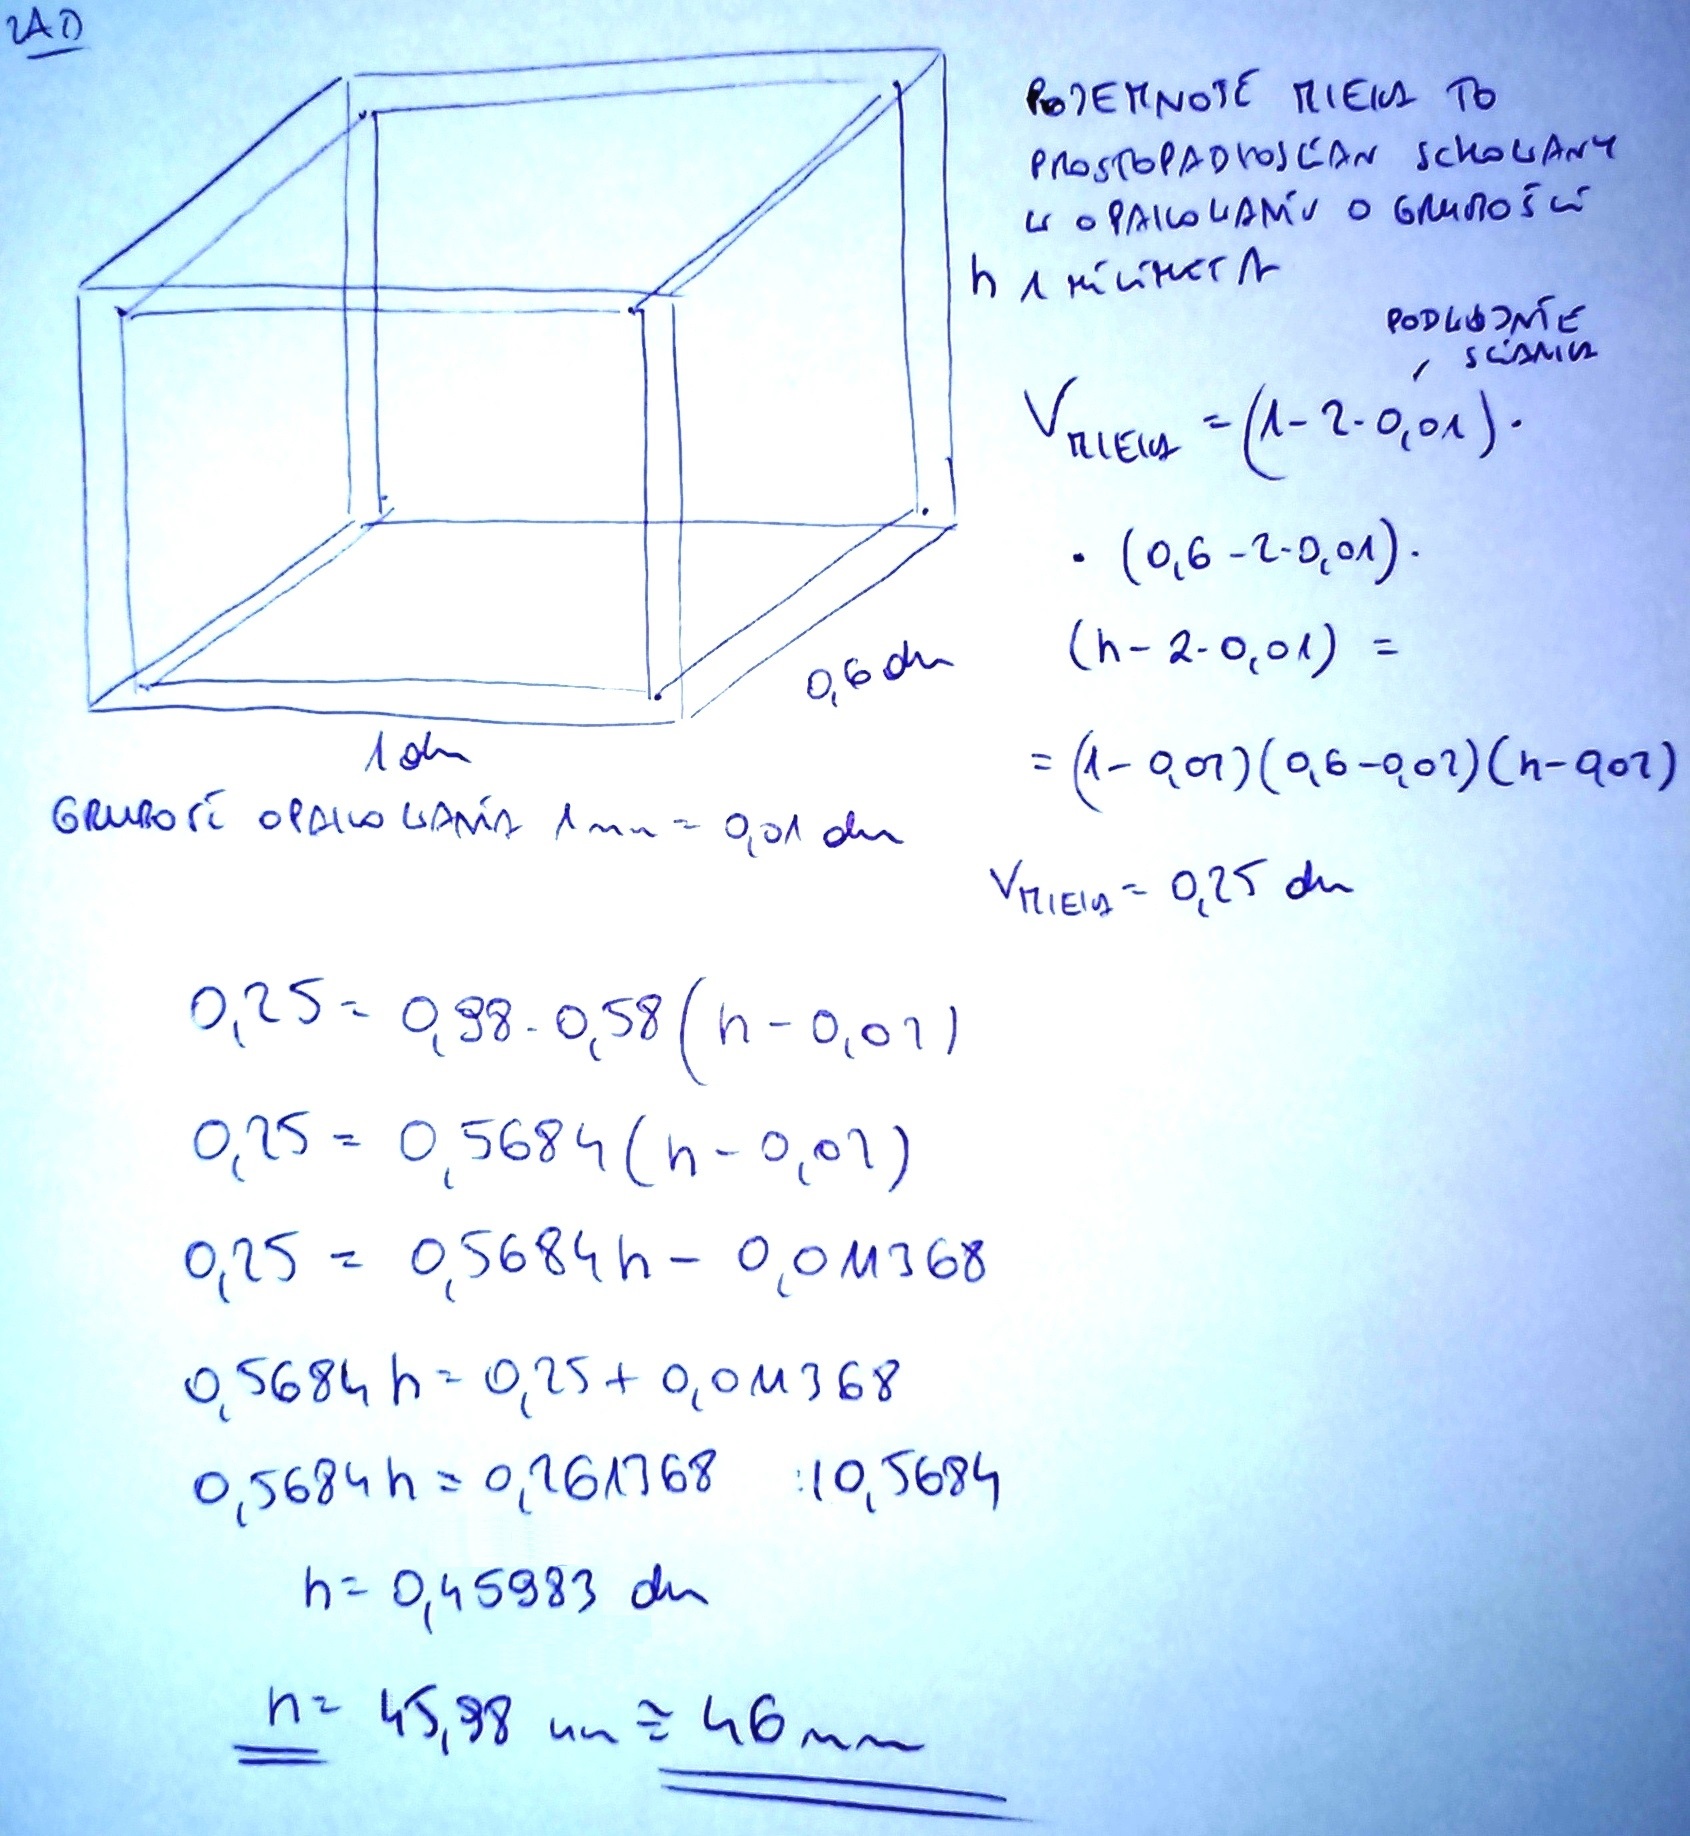 ZAD
POJEMNOŚĆ MLEKA TO
PROSTOPADŁOŚCIAN SCHOWANY
W OPAKOWANIU O GRUBOŚCI
1 MILIMETRA
h
PODWÓJNIE
ŚCIANKA
V MLEKA = (1-2·0,01)·
·(0,6-2·0,01)·
(h-2·0,01) =
= (1-0,02)(0,6-0,02)(h-0,02)
V MLEKA = 0,25 dm
0,6 dm
1 dm
GRUBOŚĆ OPAKOWANIA 1 mm = 0,01 dm
0,25 = 0,98·0,58(h-0,02)
0,25 = 0,5684(h-0,02)
0,25 = 0,5684h - 0,011368
0,5684h = 0,25 + 0,011368
0,5684h = 0,261368 :|0,5684
h = 0,45983 dm
h = 45,98 mm ≅ 46 mm